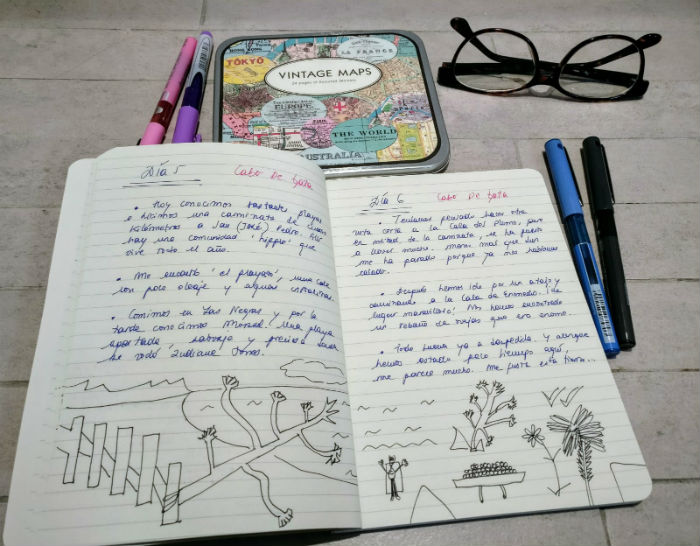 HONG KONG
LA FRANCE
TOKYO
VINTAGE MAPS
EUROPE
THE WORLD
AUSTRALIA
Día 5 Cabo De Gata
• Hoy conocimos bastantes playas
e hicimos una caminata de
kilómetros a San (José) Pedro. Allí
hay una comunidad 'hippie' que
vive todo el año.
• Me encantó 'el playazo', una cala
con poco oleaje y algunas
• Comimos en Las Negras y por la
tarde conocimos Monsul. Una playa
apartada, salvaje y preciosa donde
se rodó Indiana Jones.
Día 6 Cabo De Gata
• Teníamos pensado hacer otra
ruta corta a la Cala del Plomo, pero
en mitad de la caminata, se ha puesto
a llover mucho. menos mal que
me ha parado porque ya me
calado.
• Después hemos ido por un atajo y
caminando a la Cala de Enmedio. ¡Un
lugar maravilloso! Nos hemos encontrado
un rebaño de ovejas que era enorme.
• Todo suena ya a despedida. y aunque
hemos estado poco tiempo aquí,
me parece mucho. Me gusta esta tierra...